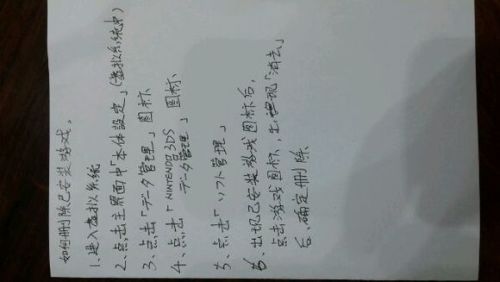 如何删除已安装游戏。
1、进入虚拟系统
2、点击主界面中「本体設定」(虚拟系统中)
3、点击「データ管理」图标
4、点击「NINTENDO 3DS
データ管理」图标、
5、点击「ソフト管理」
6、出现已安装游戏图标后,
点击游戏图标,出现「消去」
后、确定删除